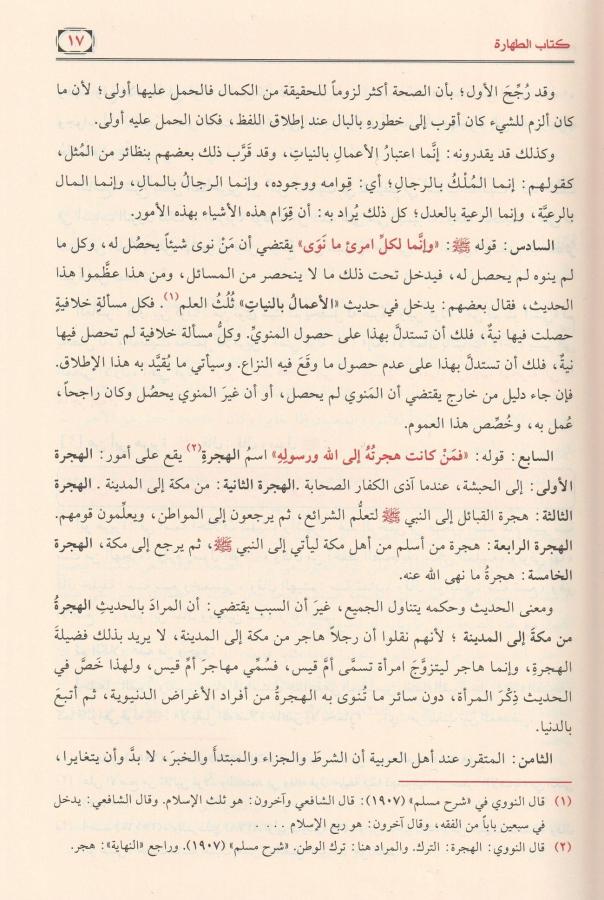 كتاب الطهارة
١٧
وقد رُجِّحَ الأول؛ بأن الصحة أكثر لزوماً للحقيقة من الكمال فالحمل عليها أولى؛ لأن ما
كان ألزم للشيء كان أقرب إلى خطوره بالبال عند إطلاق اللفظ، فكان الحمل عليه أولى.
وكذلك قد يقدرونه: إنَّما اعتبارُ الأعمالِ بالنياتِ، وقد قَرَّب ذلك بعضهم بنظائر من المُثل،
كقولهم: إنما المُلْكُ بالرجالِ؛ أي: قِوامه ووجوده، وإنما الرجالُ بالمالِ، وإنما المال
بالرعيَّة، وإنما الرعية بالعدل؛ كل ذلك يُراد به: أن قِوَام هذه الأشياء بهذه الأمور.
السادس: قوله ﷺ: «وإنَّما لكلِّ امرئ ما نَوَى» يقتضي أن مَنْ نوى شيئاً يحصل له، وكل ما
لم ينوه لم يحصل له، فيدخل تحت ذلك ما لا ينحصر من المسائل، ومن هذا عظَّموا هذا
الحديث، فقال بعضهم: يدخل في حديث «الأعمالُ بالنياتِ» ثُلُثُ العلم(١). فكل مسألةٍ خلافيةٍ
حصلت فيها نيةٌ، فلك أن تستدلَّ بهذا على حصول المنويِّ. وكلُّ مسألة خلافية لم تحصل فيها
نيةٌ، فلك أن تستدلَّ بهذا على عدم حصول ما وقَعَ فيه النزاع. وسيأتي ما يُقيَّد به هذا الإطلاق.
فإن جاء دليل من خارج يقتضي أن المَنوي لم يحصل، أو أن غيرَ المنوي يحصُل وكان راجحاً،
عُمل به، وخُصِّص هذا العموم.
السابع: قوله: «فمَنْ كانت هجرتُهُ إلى الله ورسولِهِ» اسمُ الهجرةِ(٢) يقع على أمور: الهجرة
الأولى: إلى الحبشة، عندما آذى الكفار الصحابة .الهجرة الثانية: من مكة إلى المدينة . الهجرة
الثالثة: هجرة القبائل إلى النبي ﷺ لتعلُّم الشرائع، ثم يرجعون إلى المواطن، ويعلِّمون قومهم.
الهجرة الرابعة: هجرة من أسلم من أهل مكة ليأتي إلى النبي ﷺ، ثم يرجع إلى مكة، الهجرة
الخامسة: هجرةُ ما نهى الله عنه.
ومعنى الحديث وحكمه يتناول الجميع، غيرَ أن السبب يقتضي: أن المرادَ بالحديثِ الهجرةُ
من مكةَ إلى المدينة ؛ لأنهم نقلوا أن رجلاً هاجر من مكة إلى المدينة، لا يريد بذلك فضيلةَ
الهجرةِ، وإنما هاجر ليتزوَّجَ امرأة تسمَّى أمَّ قيس، فسُمِّي مهاجرَ أمِّ قيس، ولهذا خَصَّ في
الحديث ذِكْرَ المرأة، دون سائر ما تُنوى به الهجرةُ من أفراد الأغراض الدنيوية، ثم أتبعَ
بالدنيا.
الثامن: المتقرر عند أهل العربية أن الشرطَ والجزاء والمبتدأَ والخبرَ، لا بدَّ وأن يتغايرا،
(١) قال النووي في «شرح مسلم» (١٩٠٧): قال الشافعي وآخرون: هو ثلث الإسلام. وقال الشافعي: يدخل
في سبعين باباً من الفقه، وقال آخرون: هو ربع الإسلام . . . .
(٢) قال النووي: الهجرة: الترك. والمراد هنا: ترك الوطن. «شرح مسلم» (١٩٠٧). وراجع «النهاية»: هجر.